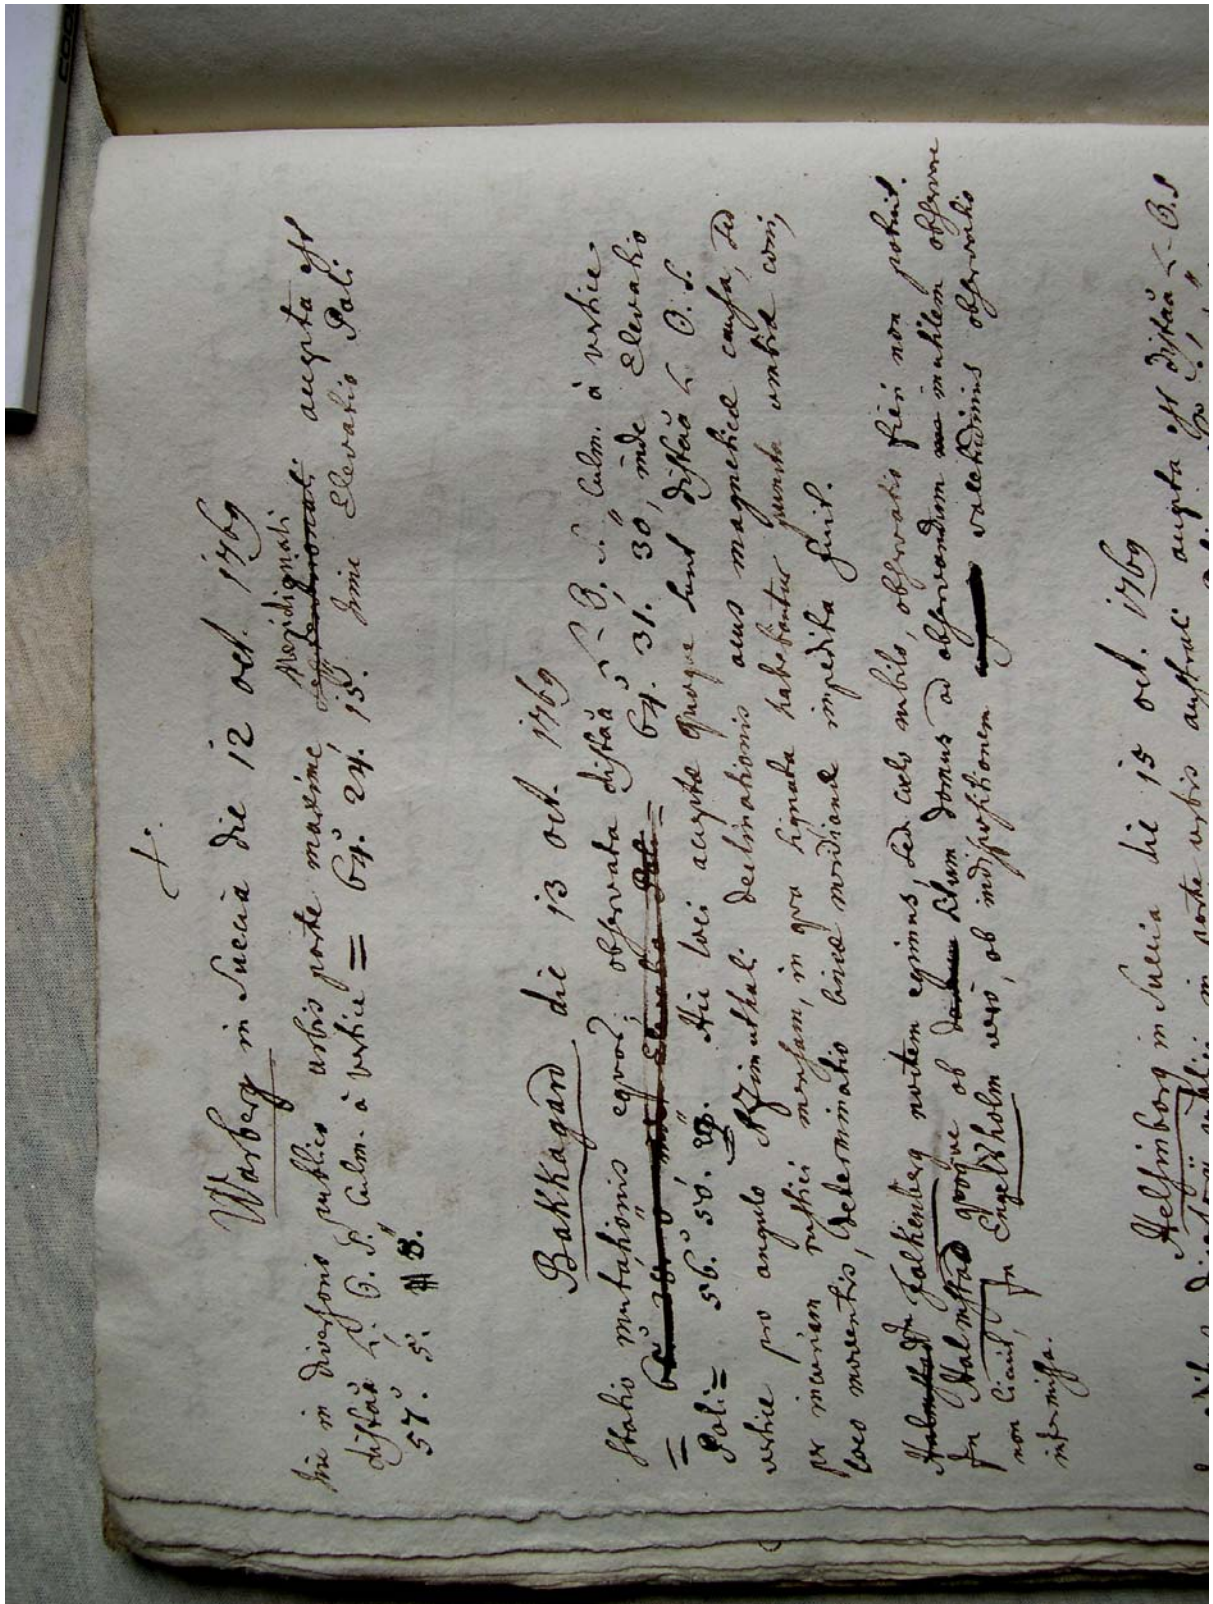 4.
Warberg in Suecia die 12 oct. 1769
Hic in diversorio publico urbis parte maxime septentrionali Meridionali accepta est
distãa L. O. S. Culm. à vertice = 64°. 24'. 15". hinc Elevatio Poli
57°. 5'. 8".
Bakkagård die 13 oct. 1769
Statio mutationis equor: observata distãa L. O. S. Culm. à vertice
= 64°. 31'. 30", inde Elevatio
Poli = 56°. 56'. Hic loci acceptæ quoque sunt distãæ L. O. S.
vertice pro angulo Azimuthali declinationis acus magneticæ causa, sed
per incuriam rustici mensam, in qua signata habebantur puncta umbræ coni,
loco moventis, determinatio lineæ meridianæ impedita fuit.
Halmstad In Falkenberg noctem egimus, sed cœlo nubilo, observatio fieri non potuit.
In Halmstad quoque ob situm domus ad observandum inutilem observare
non licuit, In Engelholm vero, ob indispositionem valetudinis observatio
intermissa.
Helsinborg in Suecia die 15 oct. 1769
in parte urbis australi accepta est distãa L. O. S